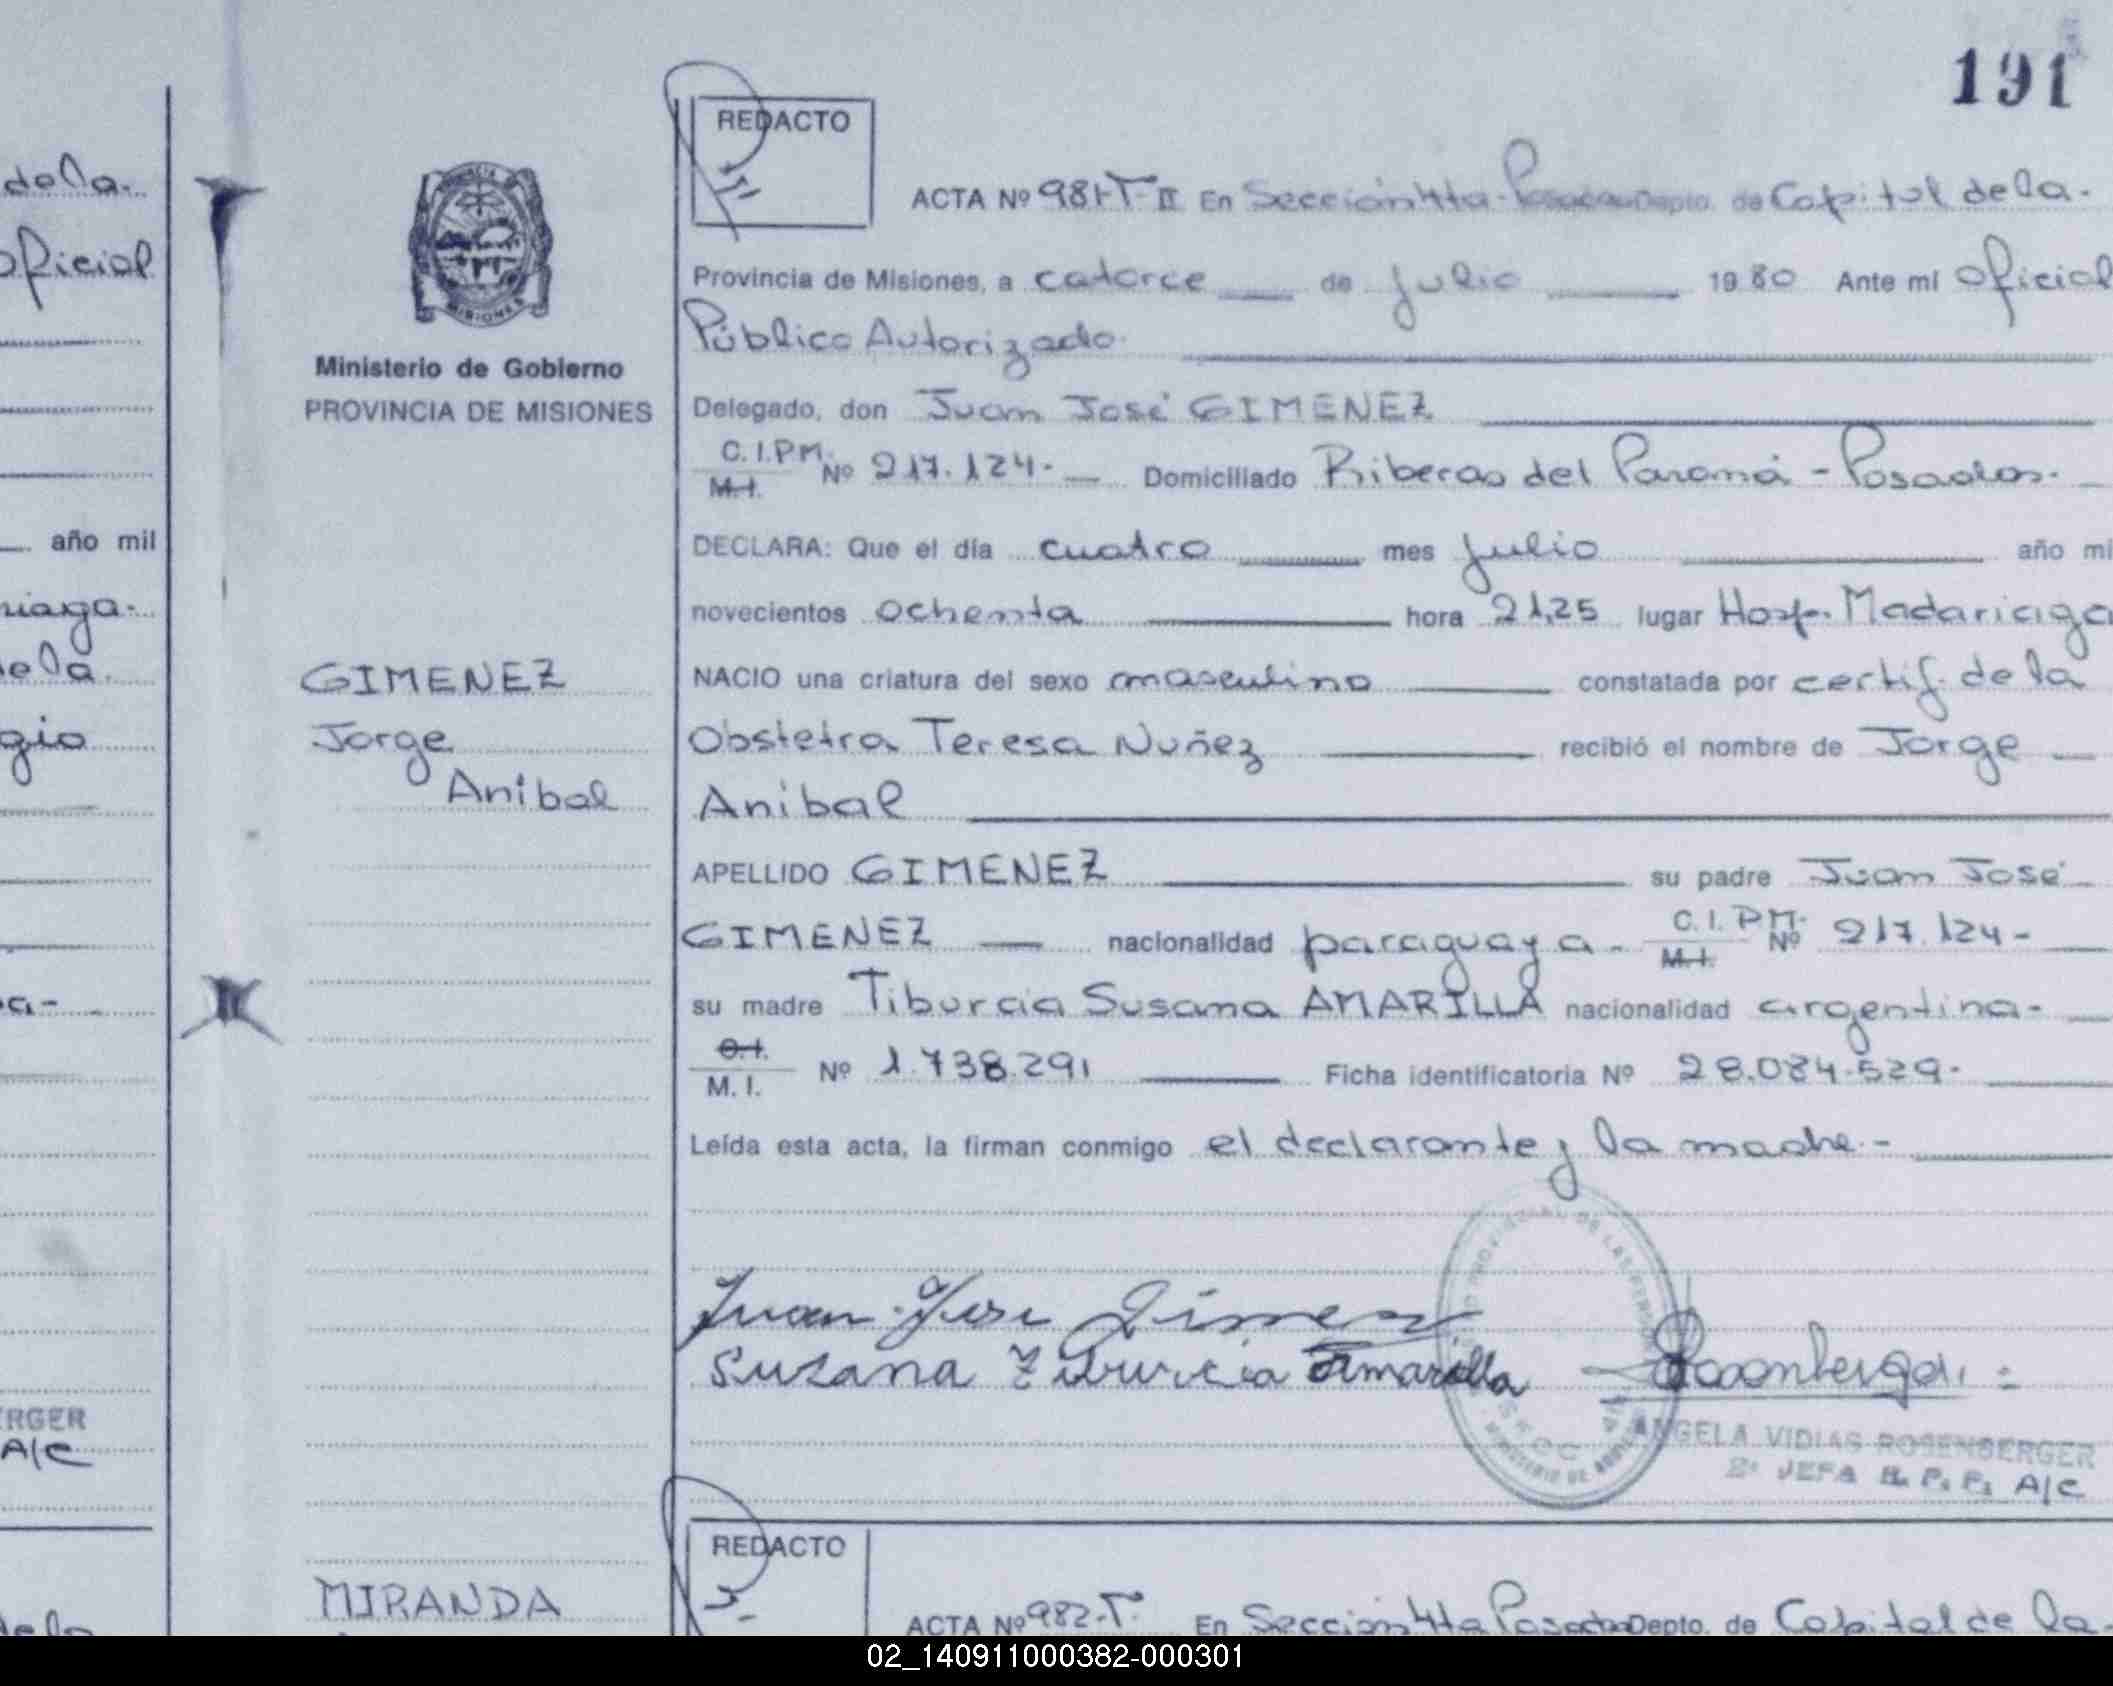 191
REDACTO
ACTA Nº 981-T-II En Sección 4ta-Posadas Depto. de Capital de la.
Provincia de Misiones, a catorce de julio 1980 Ante mi oficial
Público Autorizado.
Delegado, don Juan José GIMENEZ
C.I.P.M.
M.I. Nº 217.124.- Domiciliado Riberas del Paraná - Posadas.
DECLARA: Que el día cuatro mes julio año mi
novecientos ochenta hora 21,25 lugar Hosp. Madariaga
NACIO una criatura del sexo masculino constatada por certif. de la
Obstetra Teresa Nuñez recibió el nombre de Jorge
Anibal
APELLIDO GIMENEZ su padre Juan José
GIMENEZ nacionalidad paraguaya. C.I.P.M. Nº 217.124-
M.I.
su madre Tiburcia Susana AMARILLA nacionalidad argentina-
C.I.
M. I. Nº 1.738.291 Ficha identificatoria Nº 28.084.529.
Leída esta acta, la firman conmigo el declarante y la madre.-
Juan Jose Gimenez
Susana Tiburcia Amarilla
ANGELA VIDIAS ROSENBERGER
2ª JEFA R. P. P. A/C
Ministerio de Gobierno
PROVINCIA DE MISIONES
GIMENEZ
Jorge
Anibal
MIRANDA
REDACTO
ACTA Nº 982-T. En Sección 4ta Posadas Depto. de Capital de la.
de la.
oficial
año mil
riaga.
de la
gio
ERGER
A/C
02_140911000382-000301